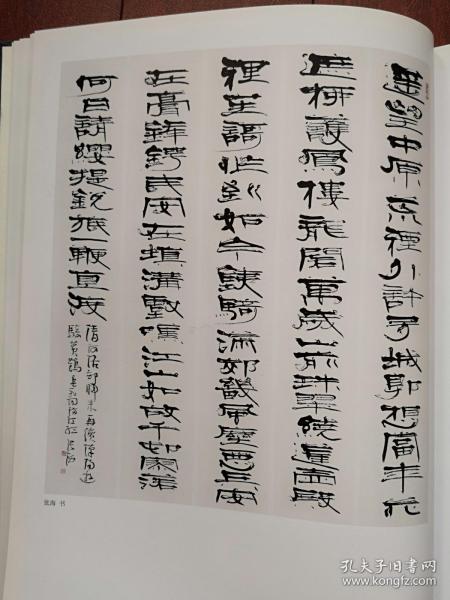 遥望中原荒烟外许多城郭想当年花
遮柳护凤楼龙阁万岁山前珠翠绕蓬壶殿
里笙歌作到如今铁骑满郊畿风尘恶兵安
在膏锋锷民安在填沟壑叹江山如故千如寥落
何日请缨提锐旅一鞭直渡
清河洛却归来再续汉阳游
骑黄鹤 岳飞词满江红 张海
张海 书
孔夫子旧书网
www.kongfz.com